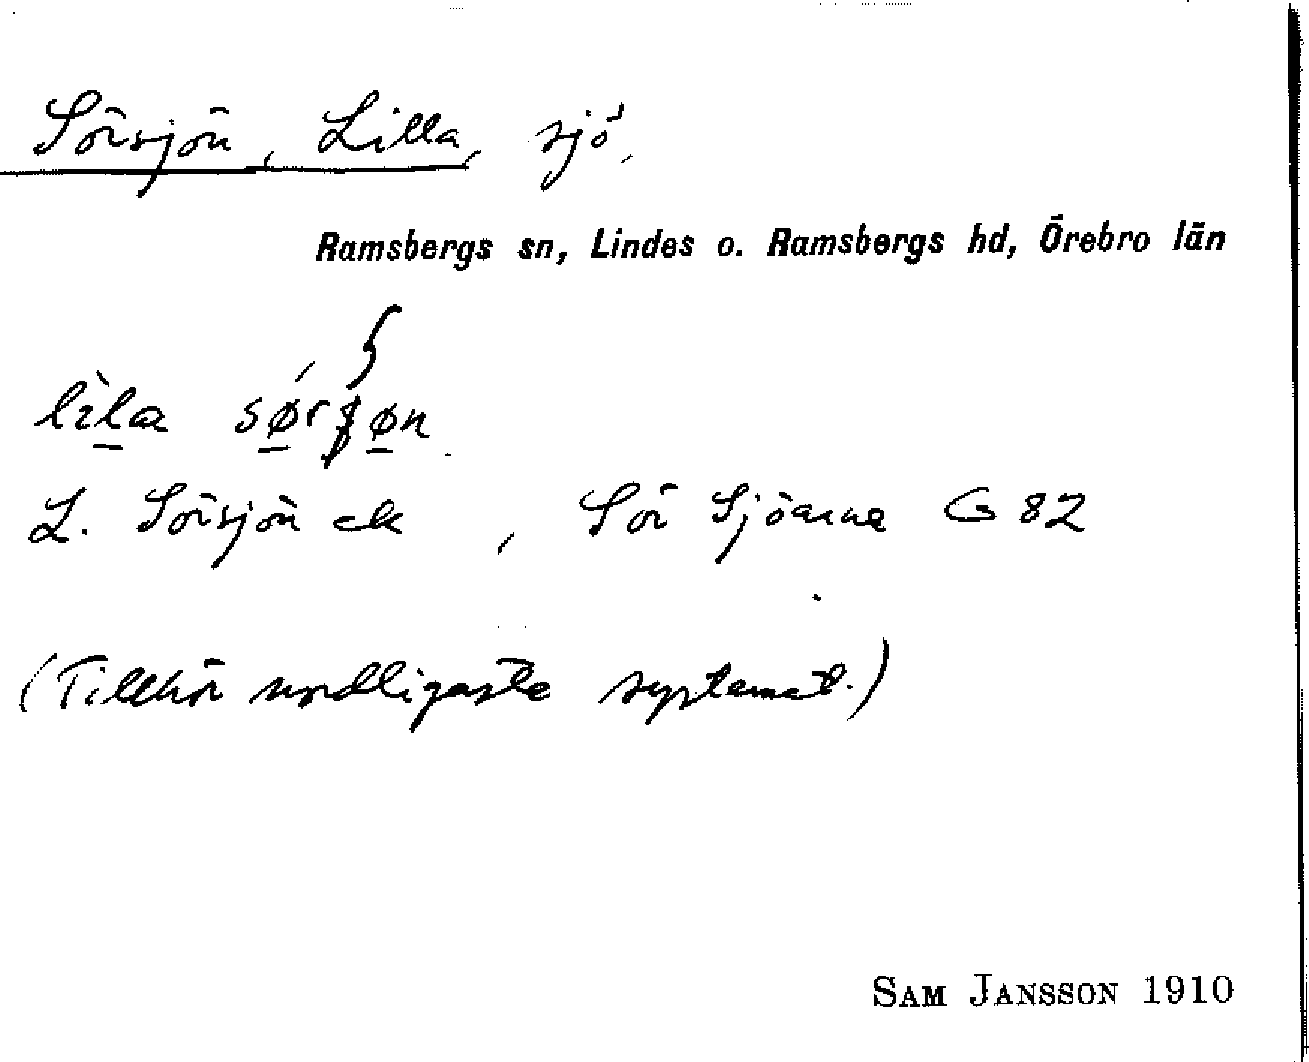 Sörsjön, Lilla, sjö,
Ramsbergs sn, Lindes o. Ramsbergs hd, Örebro län
lìla sǿrʃøn
L. Sörsjön ek, Sör Sjöarne G 82
(Tillhör nordligaste systemet.)
SAM JANSSON 1910